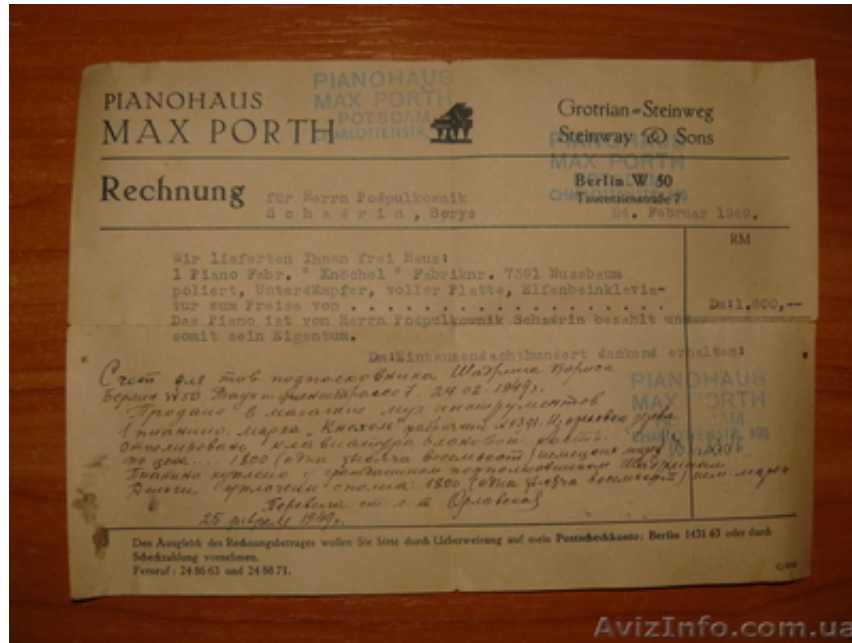 PIANOHAUS
MAX PORTH
PIANOHAUS
MAX PORTH
POTSDAM
CHARLOTTENSTR.
Grotrian-Steinweg
Steinway & Sons
PIANOHAUS
MAX PORTH
Berlin W 50
Tauentzienstraße 7
Rechnung
für Herrn Pospulkownik
Schadrin, Borys
24. Februar 1949.
RM
Wir lieferten Ihnen frei Haus:
1 Piano Fabr. " Knöchel " Fabriknr. 7391 Nussbaum
poliert, Unterdämpfer, voller Platte, Elfenbeinklavia-
tur zum Preise von . . . . . . . . . . . . . . . . . Dm:1.800,--
Das Piano ist vom Herrn Pospulkownik Schadrin bezahlt und
somit sein Eigentum.
Dm:Eintausendachthundert dankend erhalten:
Счет для тов подполковника Шадрина Бориса
Берлин W50 7. 24.02.1949г.
Продано в магазине муз инструментов
1 пианино марка „Кнохель" фабричный №7391. Из орехового
клавиатура слоновой кости.
по цене .... 1800 (одна тысяча восемьсот) немецких марок
Пианино куплено гражданином подполковником Шадриным
Деньги уплачены сполна: 1800 (одна тысяча восемьсот) нем. марок
Перевела ст. л-т Орловская
25 февраля 1949г.
PIANOHAUS
MAX PORTH
CHARLOTTENSTR.
Den Ausgleich des Rechnungsbetrages wollen Sie bitte durch Ueberweisung auf mein Postscheckkonto: Berlin 1431 63 oder durch
Scheckzahlung vornehmen.
Fernruf: 24 86 63 und 24 86 71.
AvizInfo.com.ua